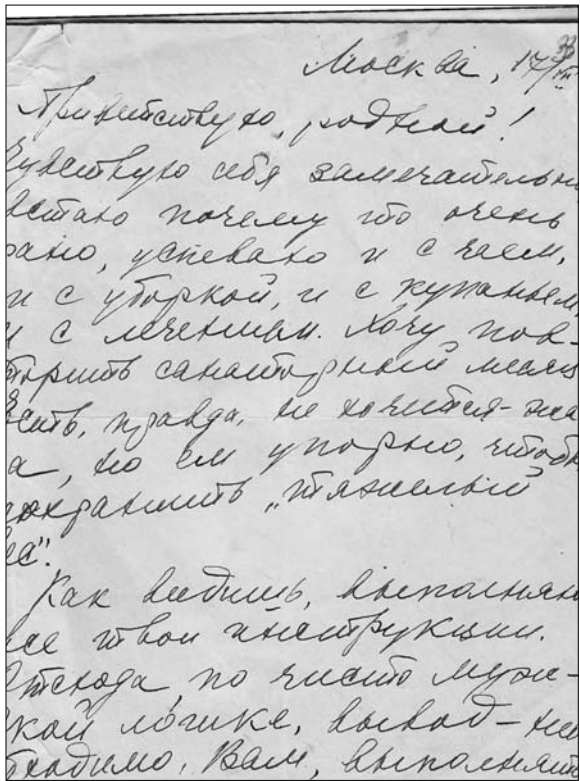 Москва, 17/VII 38
Приветствую, родной!
Чувствую себя замечательно
встаю почему то очень
рано, успеваю и с чаем,
и с уборкой, и с купаньем
и с лечением. Хочу пов-
торить санаторный месяц
Есть, правда, не хочется - жа
а, но ем упорно, чтобы
сохранить „тяжелый
вес".
Как видишь, выполняю
все твои инструкции.
Отсюда, по чисто муж-
ской логике, вывод - нео
бходимо, Вам, выполнять